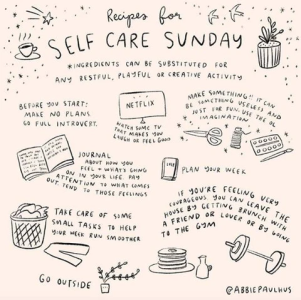 Recipes for
SELF CARE SUNDAY
*INGREDIENTS CAN BE SUBSTITUTED FOR
ANY RESTFUL, PLAYFUL OR CREATIVE ACTIVITY
BEFORE YOU START:
MAKE NO PLANS
GO FULL INTROVERT.
NETFLIX
WATCH SOME TV
THAT MAKES YOU
LAUGH OR FEEL GOOD
MAKE SOMETHING! IT CAN
BE SOMETHING USELESS AND
JUST FOR FUN. USE THE OL
IMAGINATION
JOURNAL
ABOUT HOW YOU
FEEL + WHAT'S GOING
ON IN YOUR LIFE. PAY
ATTENTION TO WHAT COMES
OUT. TEND TO THOSE FEELINGS
PLAN YOUR WEEK
TAKE CARE OF SOME
SMALL TASKS TO HELP
YOUR WEEK RUN SMOOTHER
IF YOU'RE FEELING VERY
COURAGEOUS, YOU CAN LEAVE THE
HOUSE BY GETTING BRUNCH WITH
A FRIEND OR LOVER OR BY GOING
TO THE GYM
GO OUTSIDE
@ABBIEPAULHUS